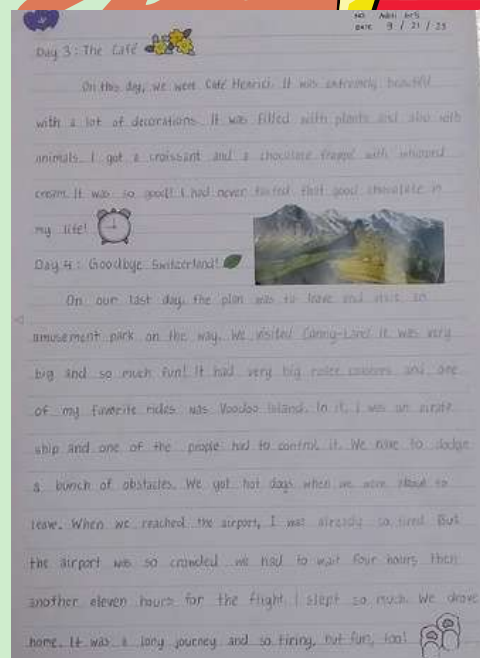 DATE 9 / 21 / 23
Day 3: The Café
On this day, we went Café Henrici. It was extremely beautiful
with a lot of decorations. It was filled with plants and also with
animals. I got a croissant and a chocolate frappé with whipped
cream. It was so good! I had never tasted that good chocolate in
my life!
Day 4: Goodbye Switzerland!
On our last day, the plan was to leave and visit an
amusement park on the way. We visited It was very
big and so much fun! It had very big roller coasters and one
of my favorite rides was Voodoo Island. In it, I was on pirate
ship and one of the people had to control it. We have to dodge
a bunch of obstacles. We got hot dogs when we were about to
leave. When we reached the airport, I was already so tired. But
the airport was so crowded we had to wait four hours then
another eleven hours for the flight. I slept so much. We drove
home. It was a long journey and so tiring, but fun, too!